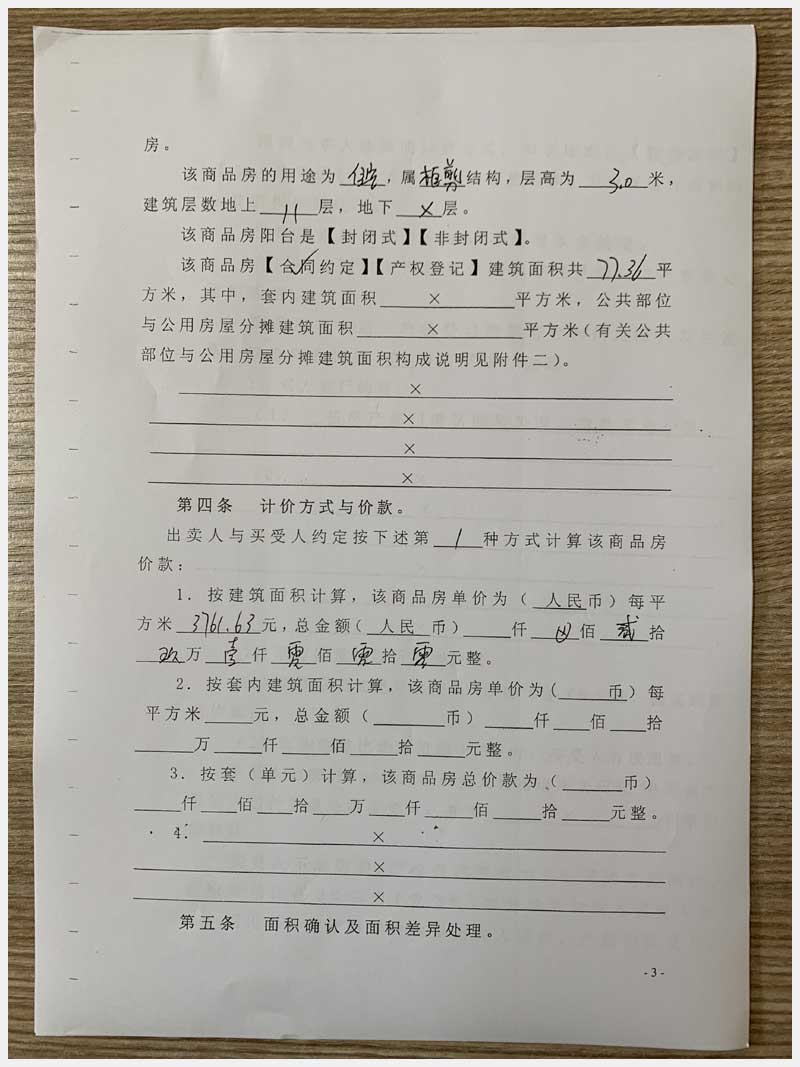 房。
该商品房的用途为 住宅 ,属 框剪 结构，层高为 3.0 米，
建筑层数地上 11 层，地下 × 层。
该商品房阳台是【封闭式】【非封闭式】。
该商品房【合同约定】【产权登记】建筑面积共 77.36 平
方米，其中，套内建筑面积 × 平方米，公共部位
与公用房屋分摊建筑面积 × 平方米(有关公共
部位与公用房屋分摊建筑面积构成说明见附件二)。
×
×
×
×
第四条 计价方式与价款。
出卖人与买受人约定按下述第 1 种方式计算该商品房
价款：
1. 按建筑面积计算，该商品房单价为（ 人民币）每平
方米 3761.63 元，总金额( 人民 币) 仟 佰 贰 拾
玖 万 壹 仟 零 佰 零 拾 零 元整。
2. 按套内建筑面积计算，该商品房单价为( 币) 每
平方米 元，总金额（ 币） 仟 佰 拾
万 仟 佰 拾 元整。
3. 按套（单元）计算，该商品房总价款为（ 币）
仟 佰 拾 万 仟 佰 拾 元整。
4. ×
×
×
第五条 面积确认及面积差异处理。
- 3 -